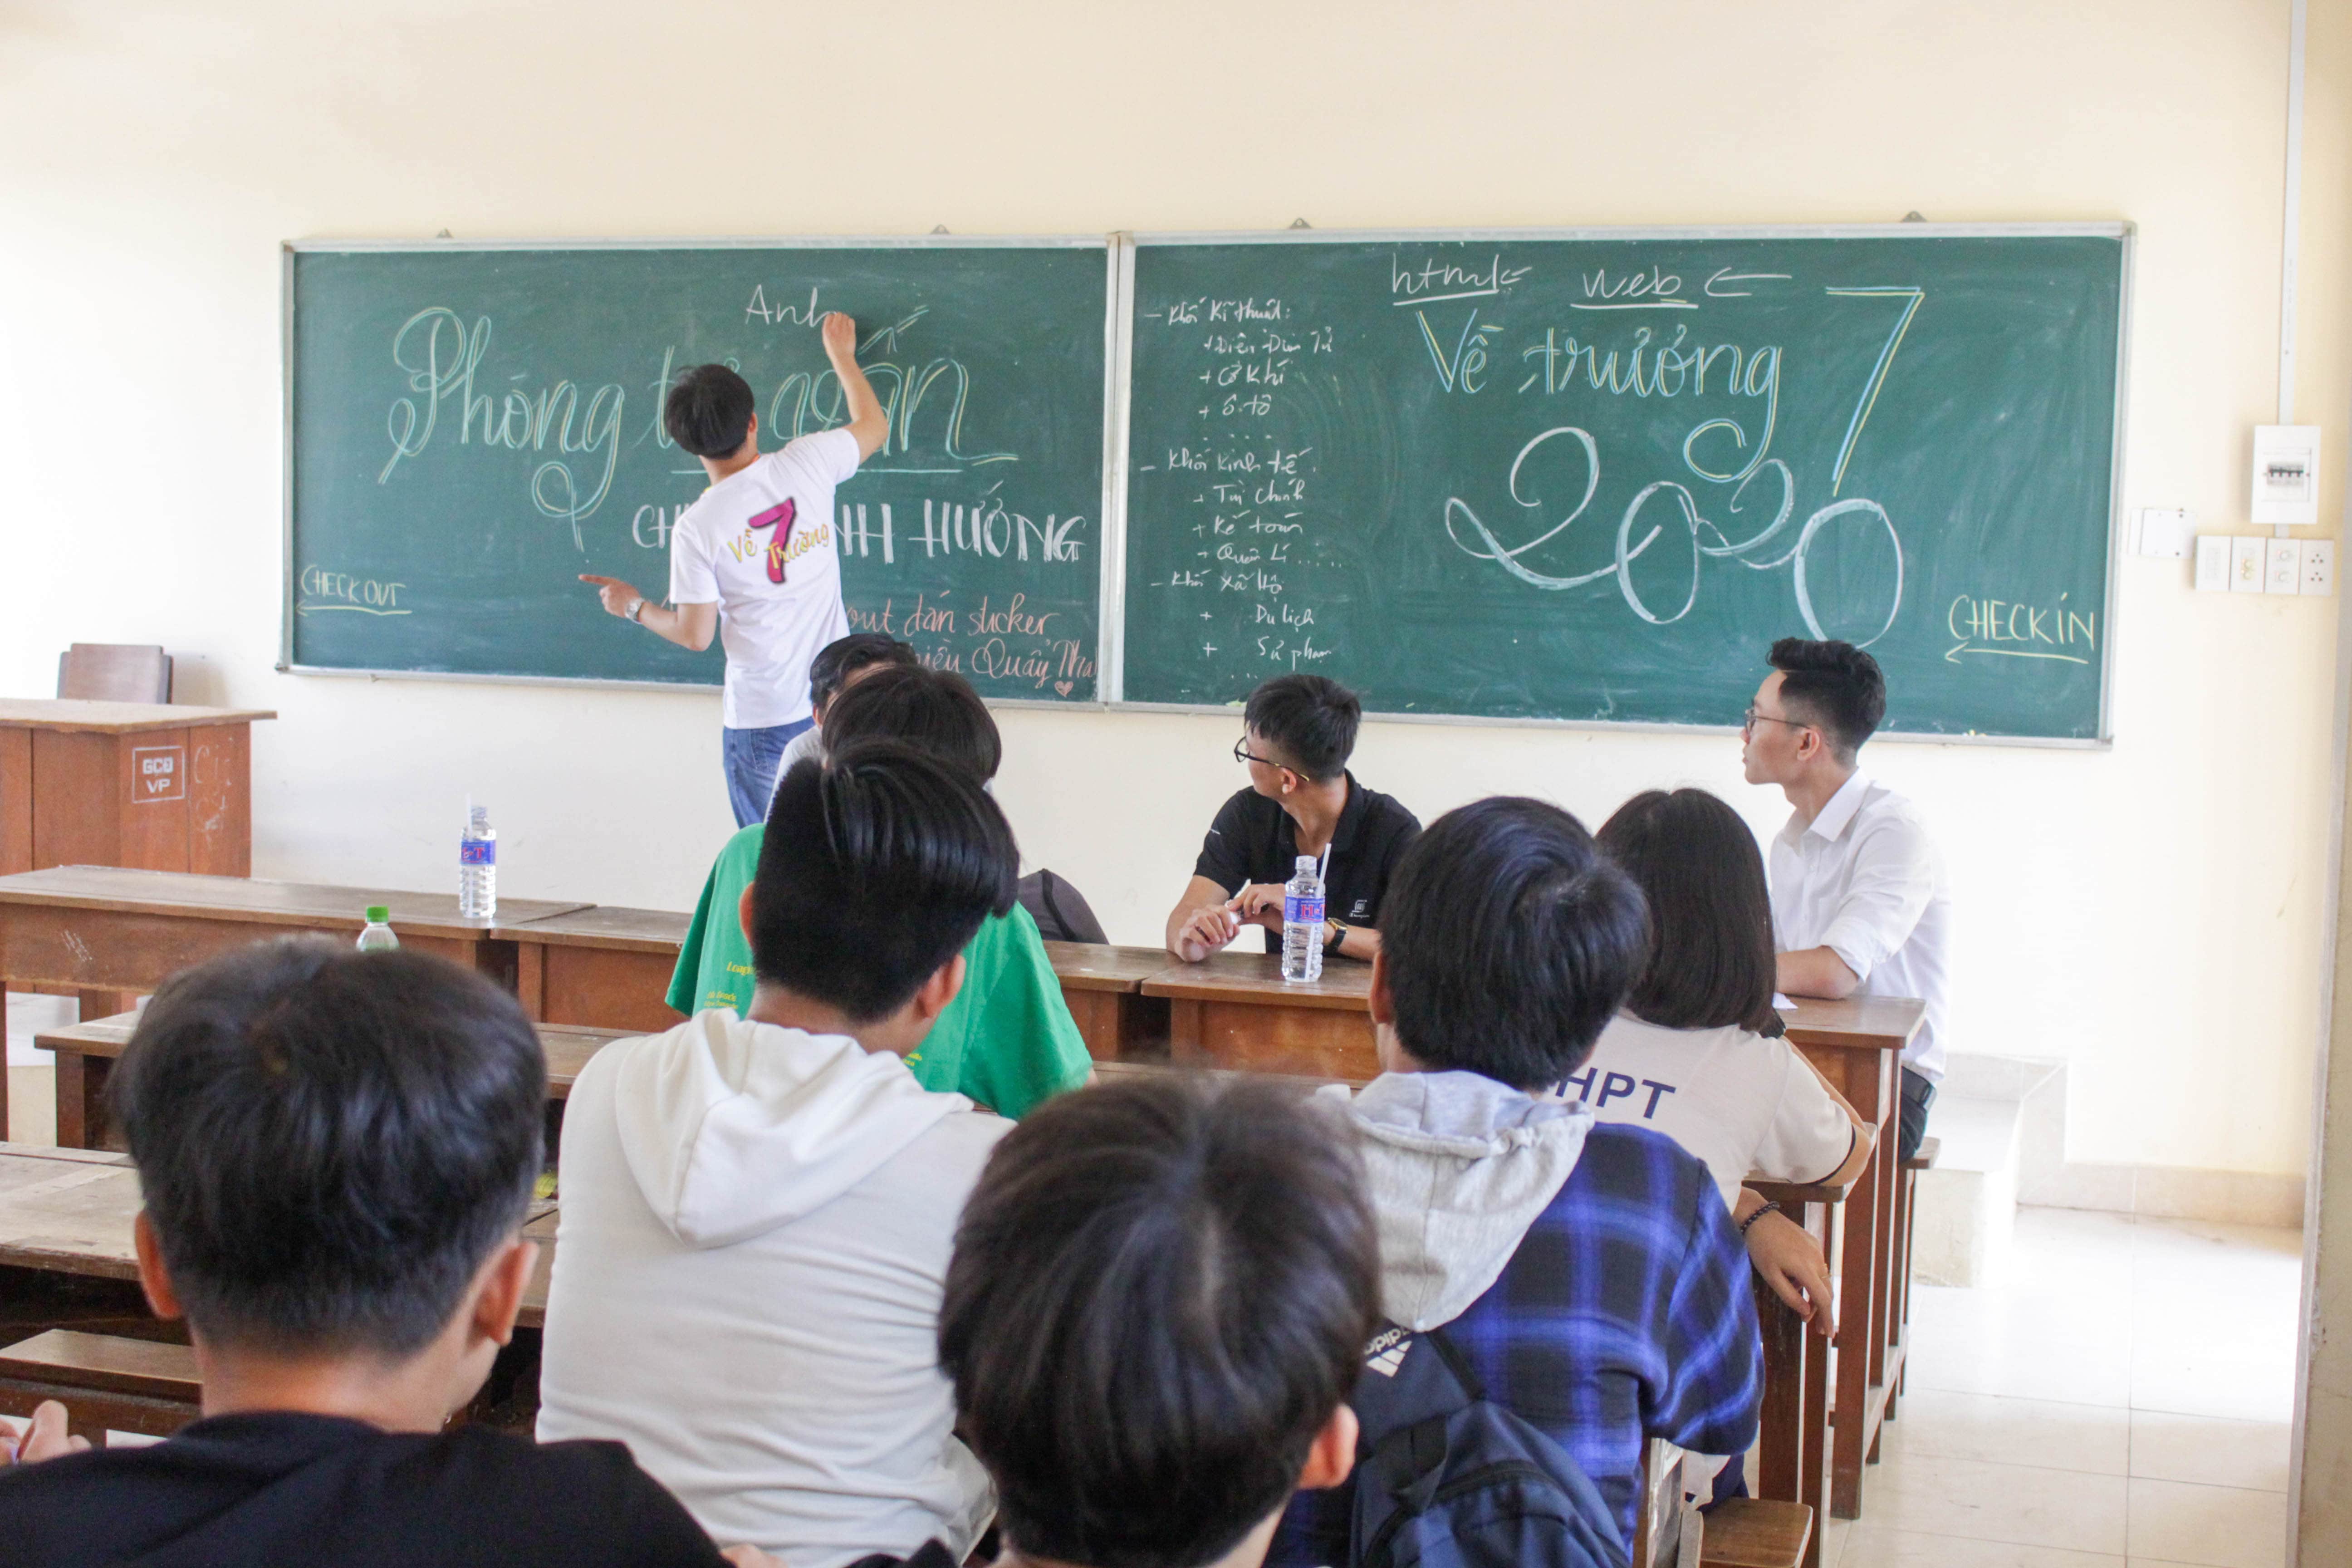 Anh
Phòng tư vấn
HƯỚNG
CHECK OUT
out dán sticker
Quầy Nha
- Khối Kĩ thuật:
+ Điện Điện Tử
+ Cơ Khí
+ Ô tô
....
- Khối Kinh tế
+ Tài chính
+ Kế toán
+ Quản Lí .....
- Khối Xã Hội
+ Du lịch
+ Sư phạm
...
html
web
Về trường 7
2020
CHECK IN
Về 7 Trường
GCĐ
VP
HPT
adidas